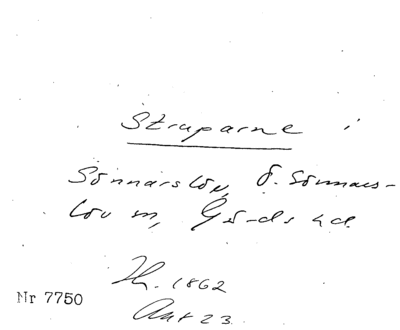 Struparne i
Sönnarslöv, Ö. Sönnars-
löv sn, Gärds hd.
Th. 1862
Ant 23.
Nr 7750